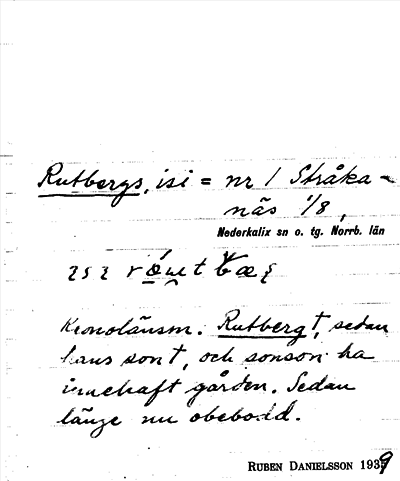 Rutbergs, isi = nr 1 Stråka-
näs 1/8,
Nederkalix sn o. tg. Norrb. län
Kronolänsm. Rutberg †, sedan
hans son †, och sonson ha
innehaft gården. Sedan
länge nu obebodd.
RUBEN DANIELSSON 1939